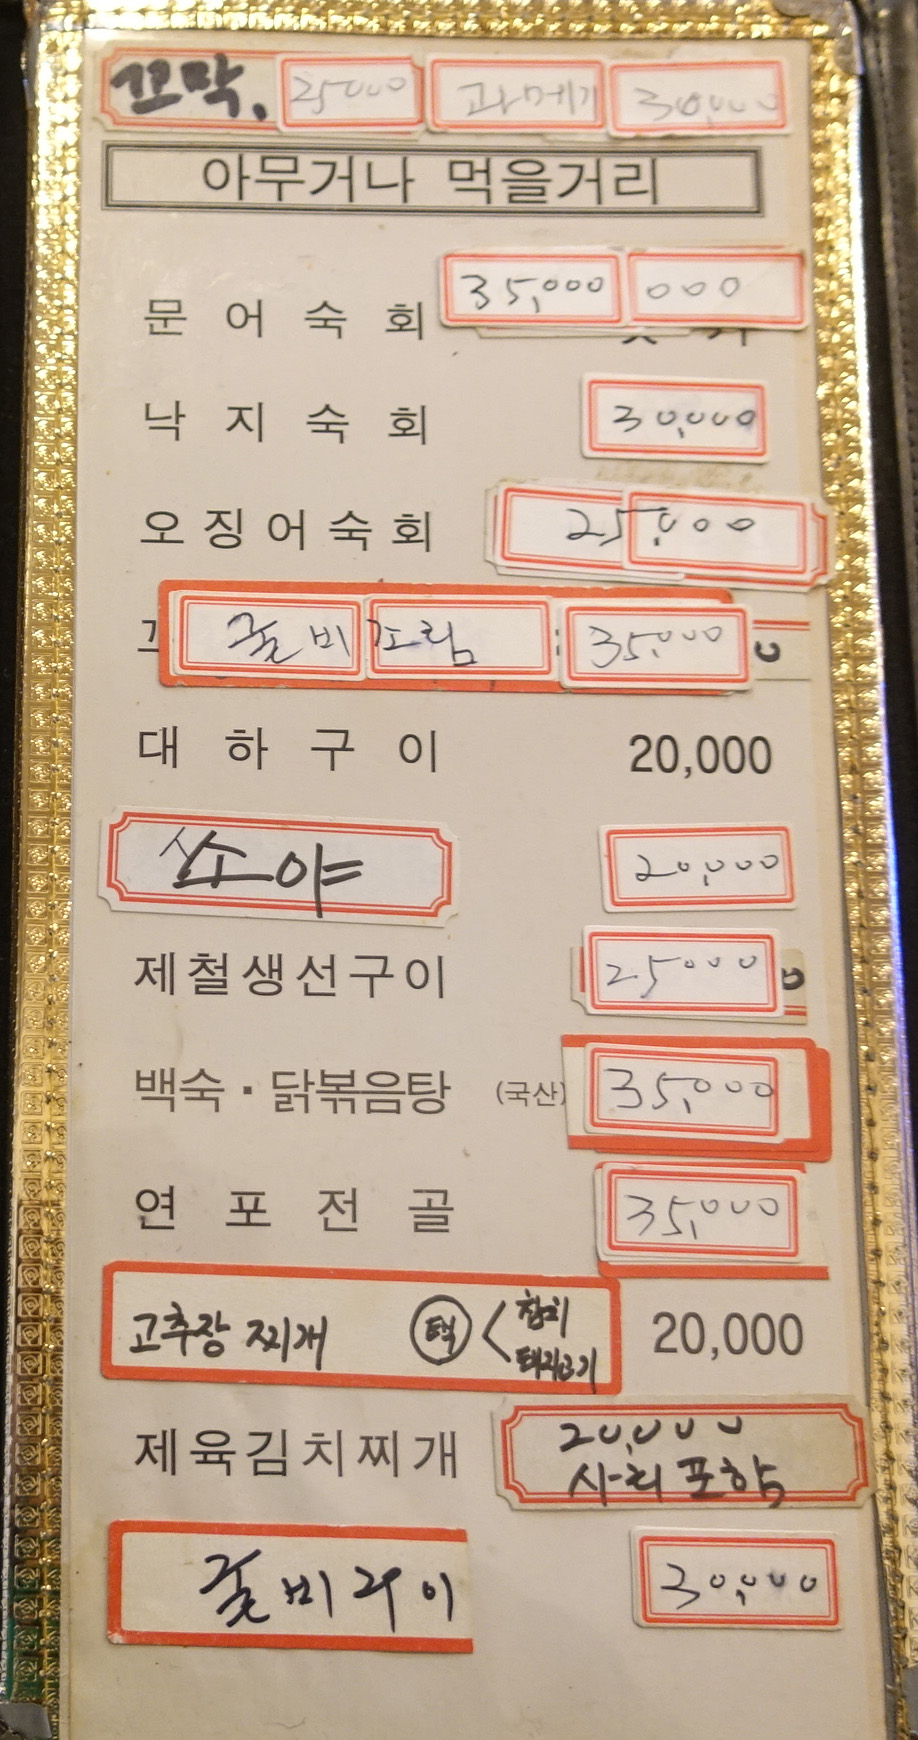 꼬막. 25000 과메기 30,000
아무거나 먹을거리
문어숙회 35,000 000
낙지숙회 30,000
오징어숙회 25,000
굴비조림 35,000
대하구이 20,000
쏘야 20,000
제철생선구이 25000
백숙·닭볶음탕 (국산) 35,000
연포전골 35,000
고추장 찌개 택 < 참치 돼지고기 20,000
제육김치찌개 20,000
사리 포함
굴비구이 30,000